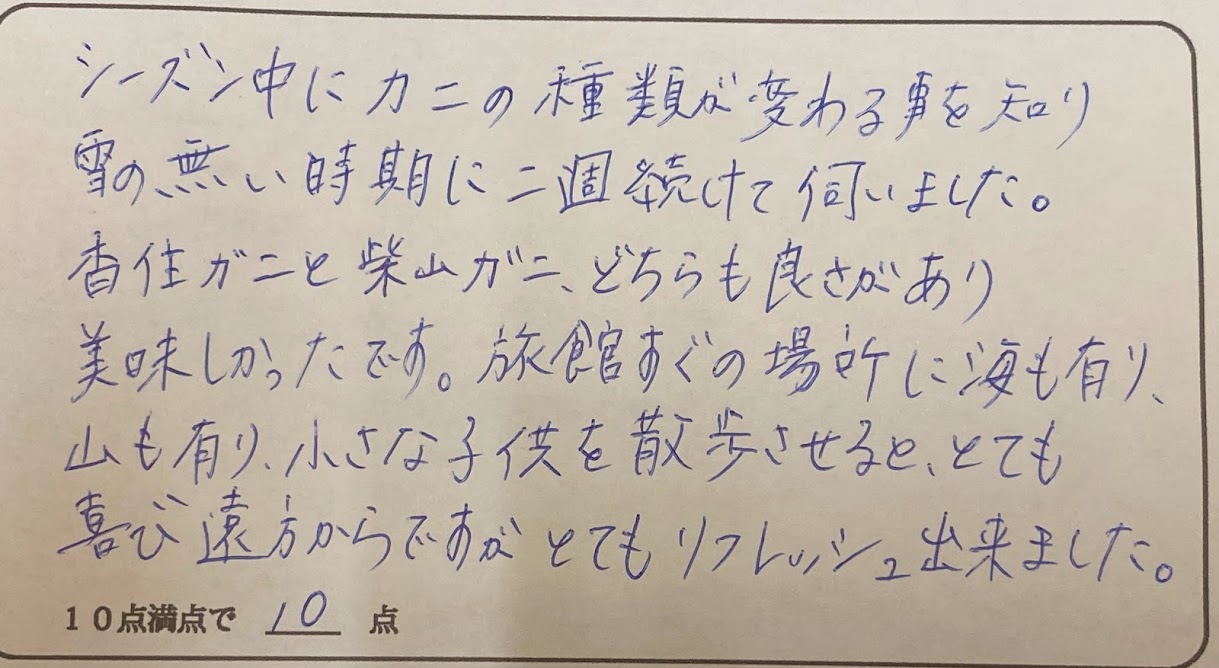 シーズン中にカニの種類が変わる事を知り
雪の無い時期に二週続けて伺いました。
香住ガニと柴山ガニ、どちらも良さがあり
美味しかったです。旅館すぐの場所に海も有り、
山も有り、小さな子供を散歩させると、とても
喜び遠方からですがとてもリフレッシュ出来ました。
10点満点で 10 点